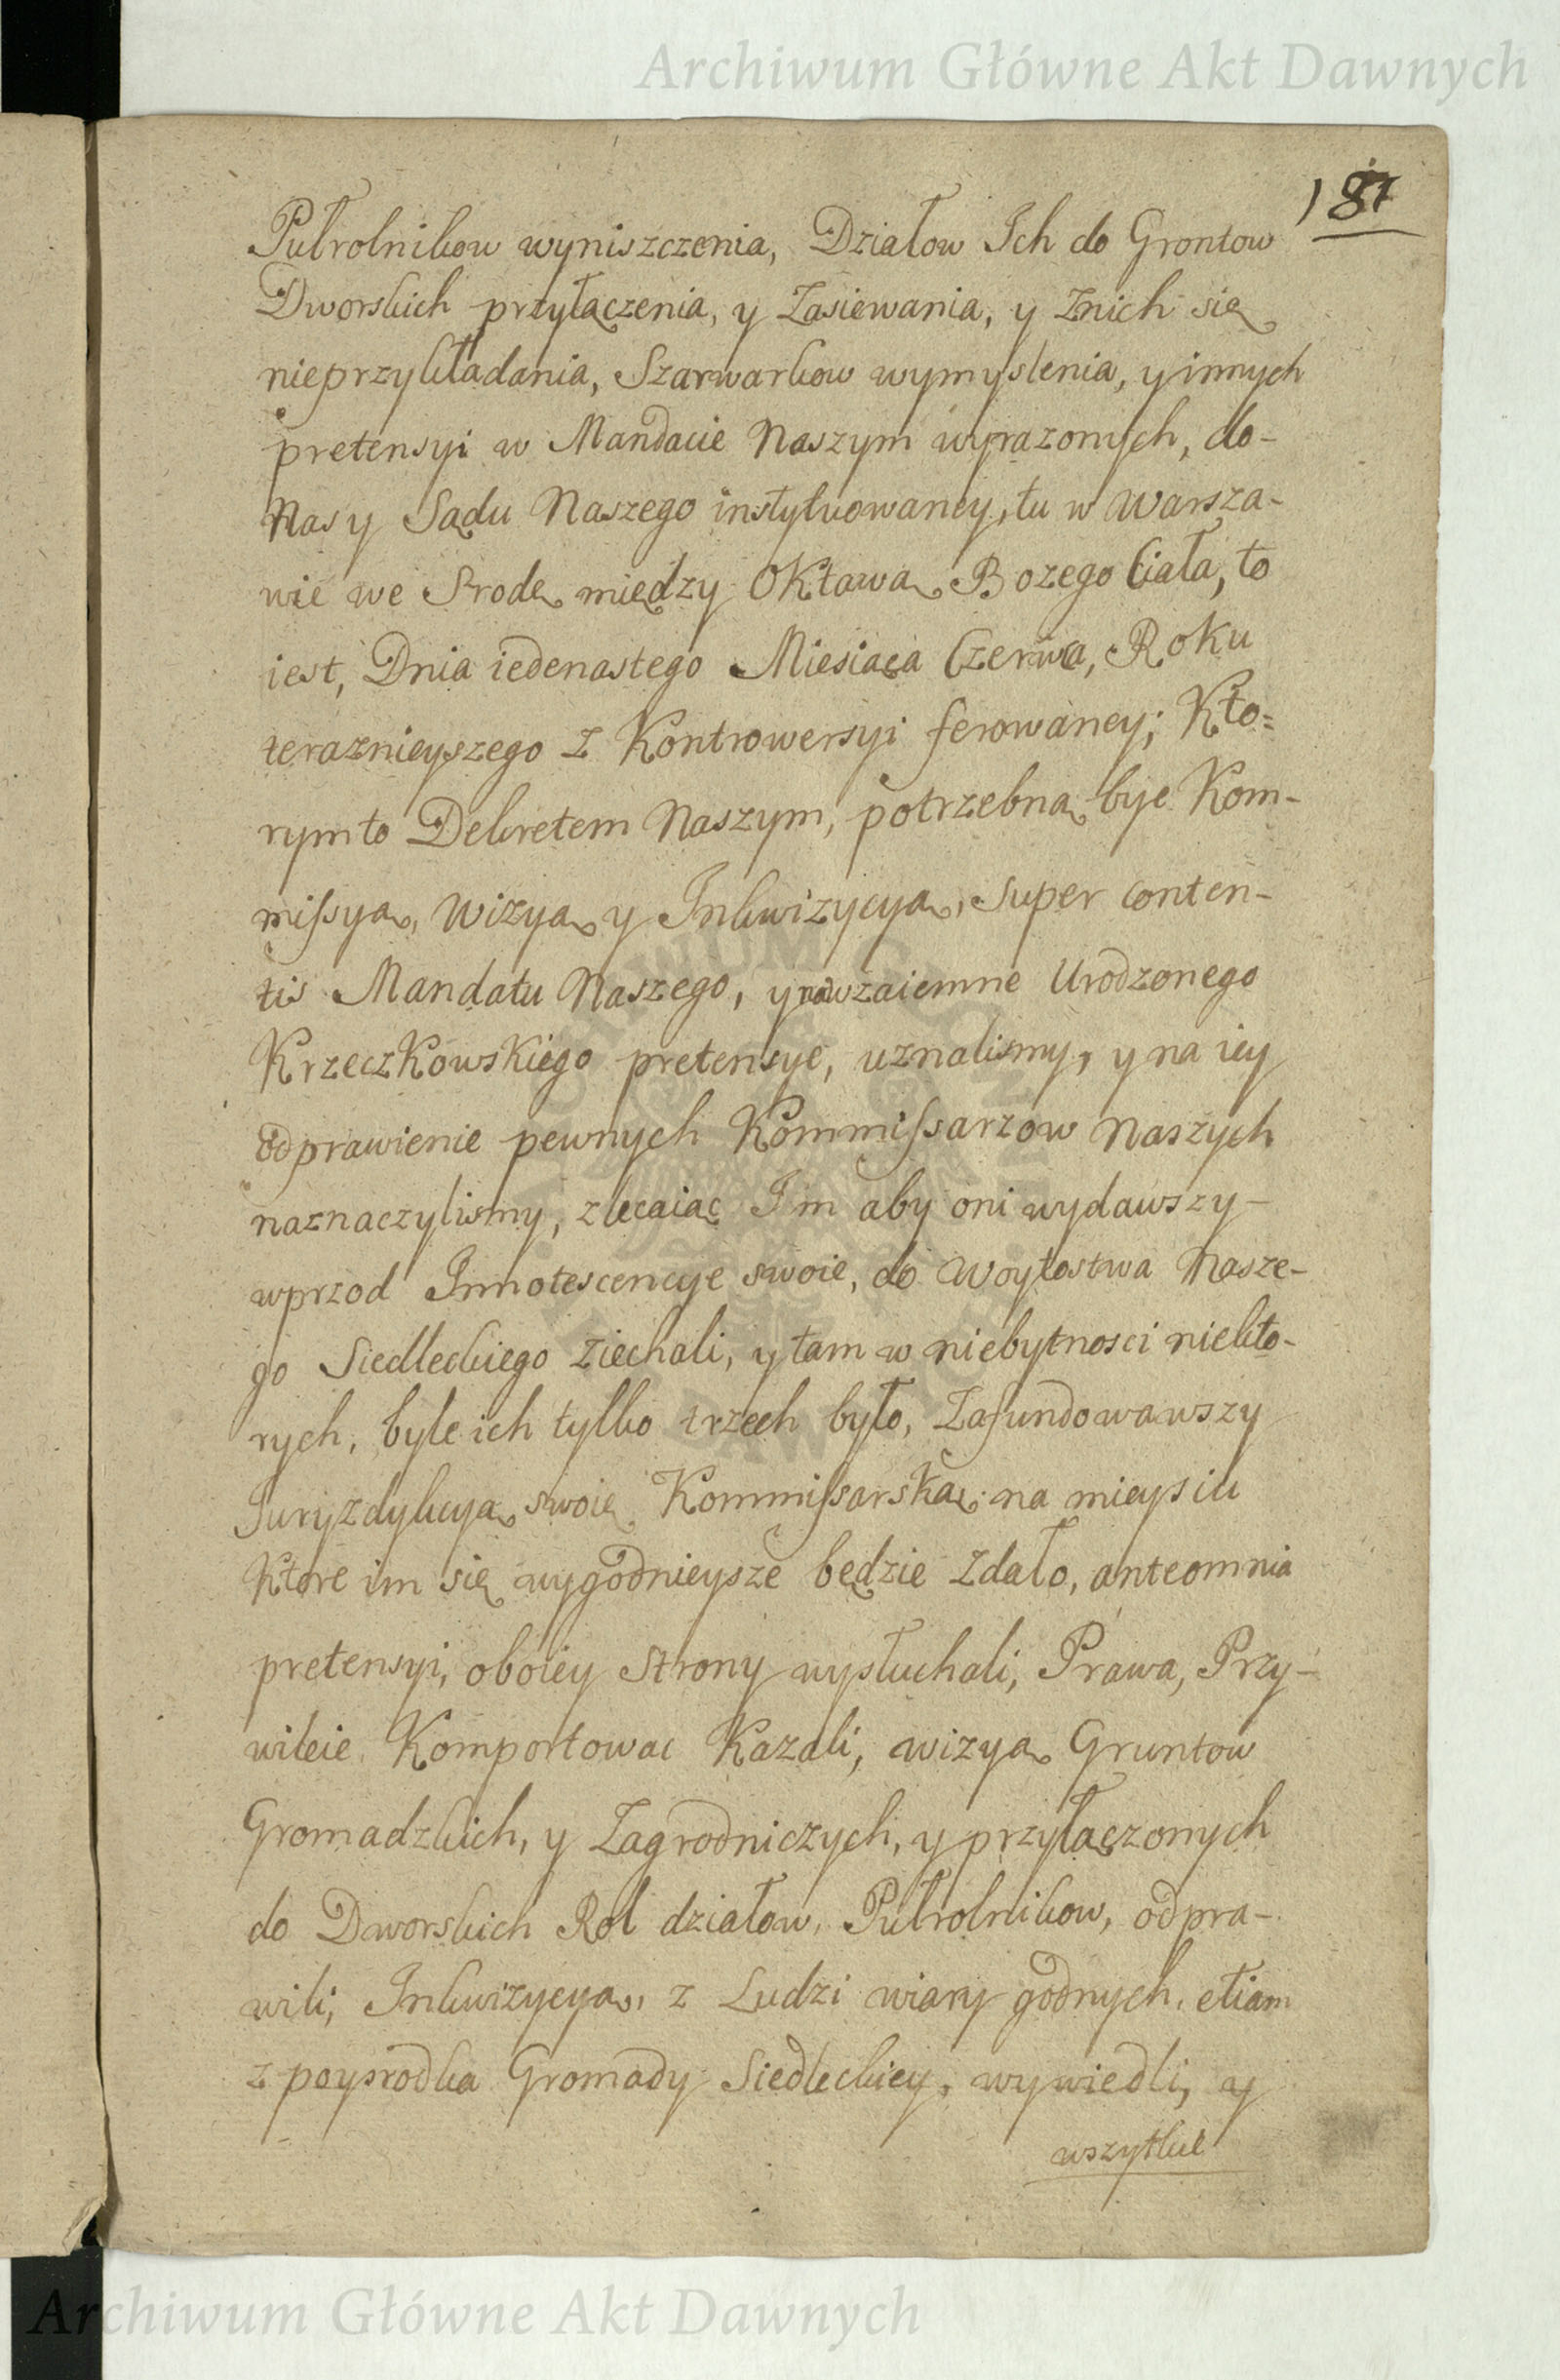 Archiwum Główne Akt Dawnych
187
Pułrolnikow wyniszczenia, Działow Ich do Grontow
Dworskich przyłączenia, y Zasiewania, y Znich się
nieprzykładania, Szarwarkow wymyslenia, y innych
pretensyi w Mandacie Naszym wyrazonych, do-
Nas y Sądu Naszego instytuowaney, tu w Warsza-
wie we Srodę między Oktawą Bozego Ciała, to
iest, Dnia iedenastego Miesiąca Czerwca, Roku
teraznieyszego z Kontrowersyi ferowaney; Kto=
rym to Dekretem Naszym, potrzebną byc Kom-
missyą, Wizyą y Inkwizycyą, Super conten-
tis Mandatu Naszego, y na wzaiemne Urodzonego
Krzeczkowskiego pretensye, uznalismy, y na iey
odprawienie pewnych Kommissarzow Naszych
naznaczylismy, zlecaiąc Im aby oni wydawszy-
wprzod Innotescencye swoie, do Woytostwa Nasze-
go Siedleckiego Ziechali, y tam w niebytnosci niekto-
rych, byle ich tylko trzech było, Zafundowawszy
Juryzdykcyą swoię Kommissarską na mieyscu
Ktore im się wygodnieysze będzie Zdało, anteomnia
pretensyi, oboiey Strony wysłuchali, Prawa, Przy-
wileie Komportowac Kazali, wizyą Gruntow
Gromadzkich, y Zagrodniczych, y przyłączonych
do Dworskich Rol działow, Pułrolnikow, odpra-
wili, Inkwizycyą, z Ludzi wiary godnych, etiam
z poysrodka Gromady Siedleckiey, wywiedli, y
wszytkie
Archiwum Główne Akt Dawnych